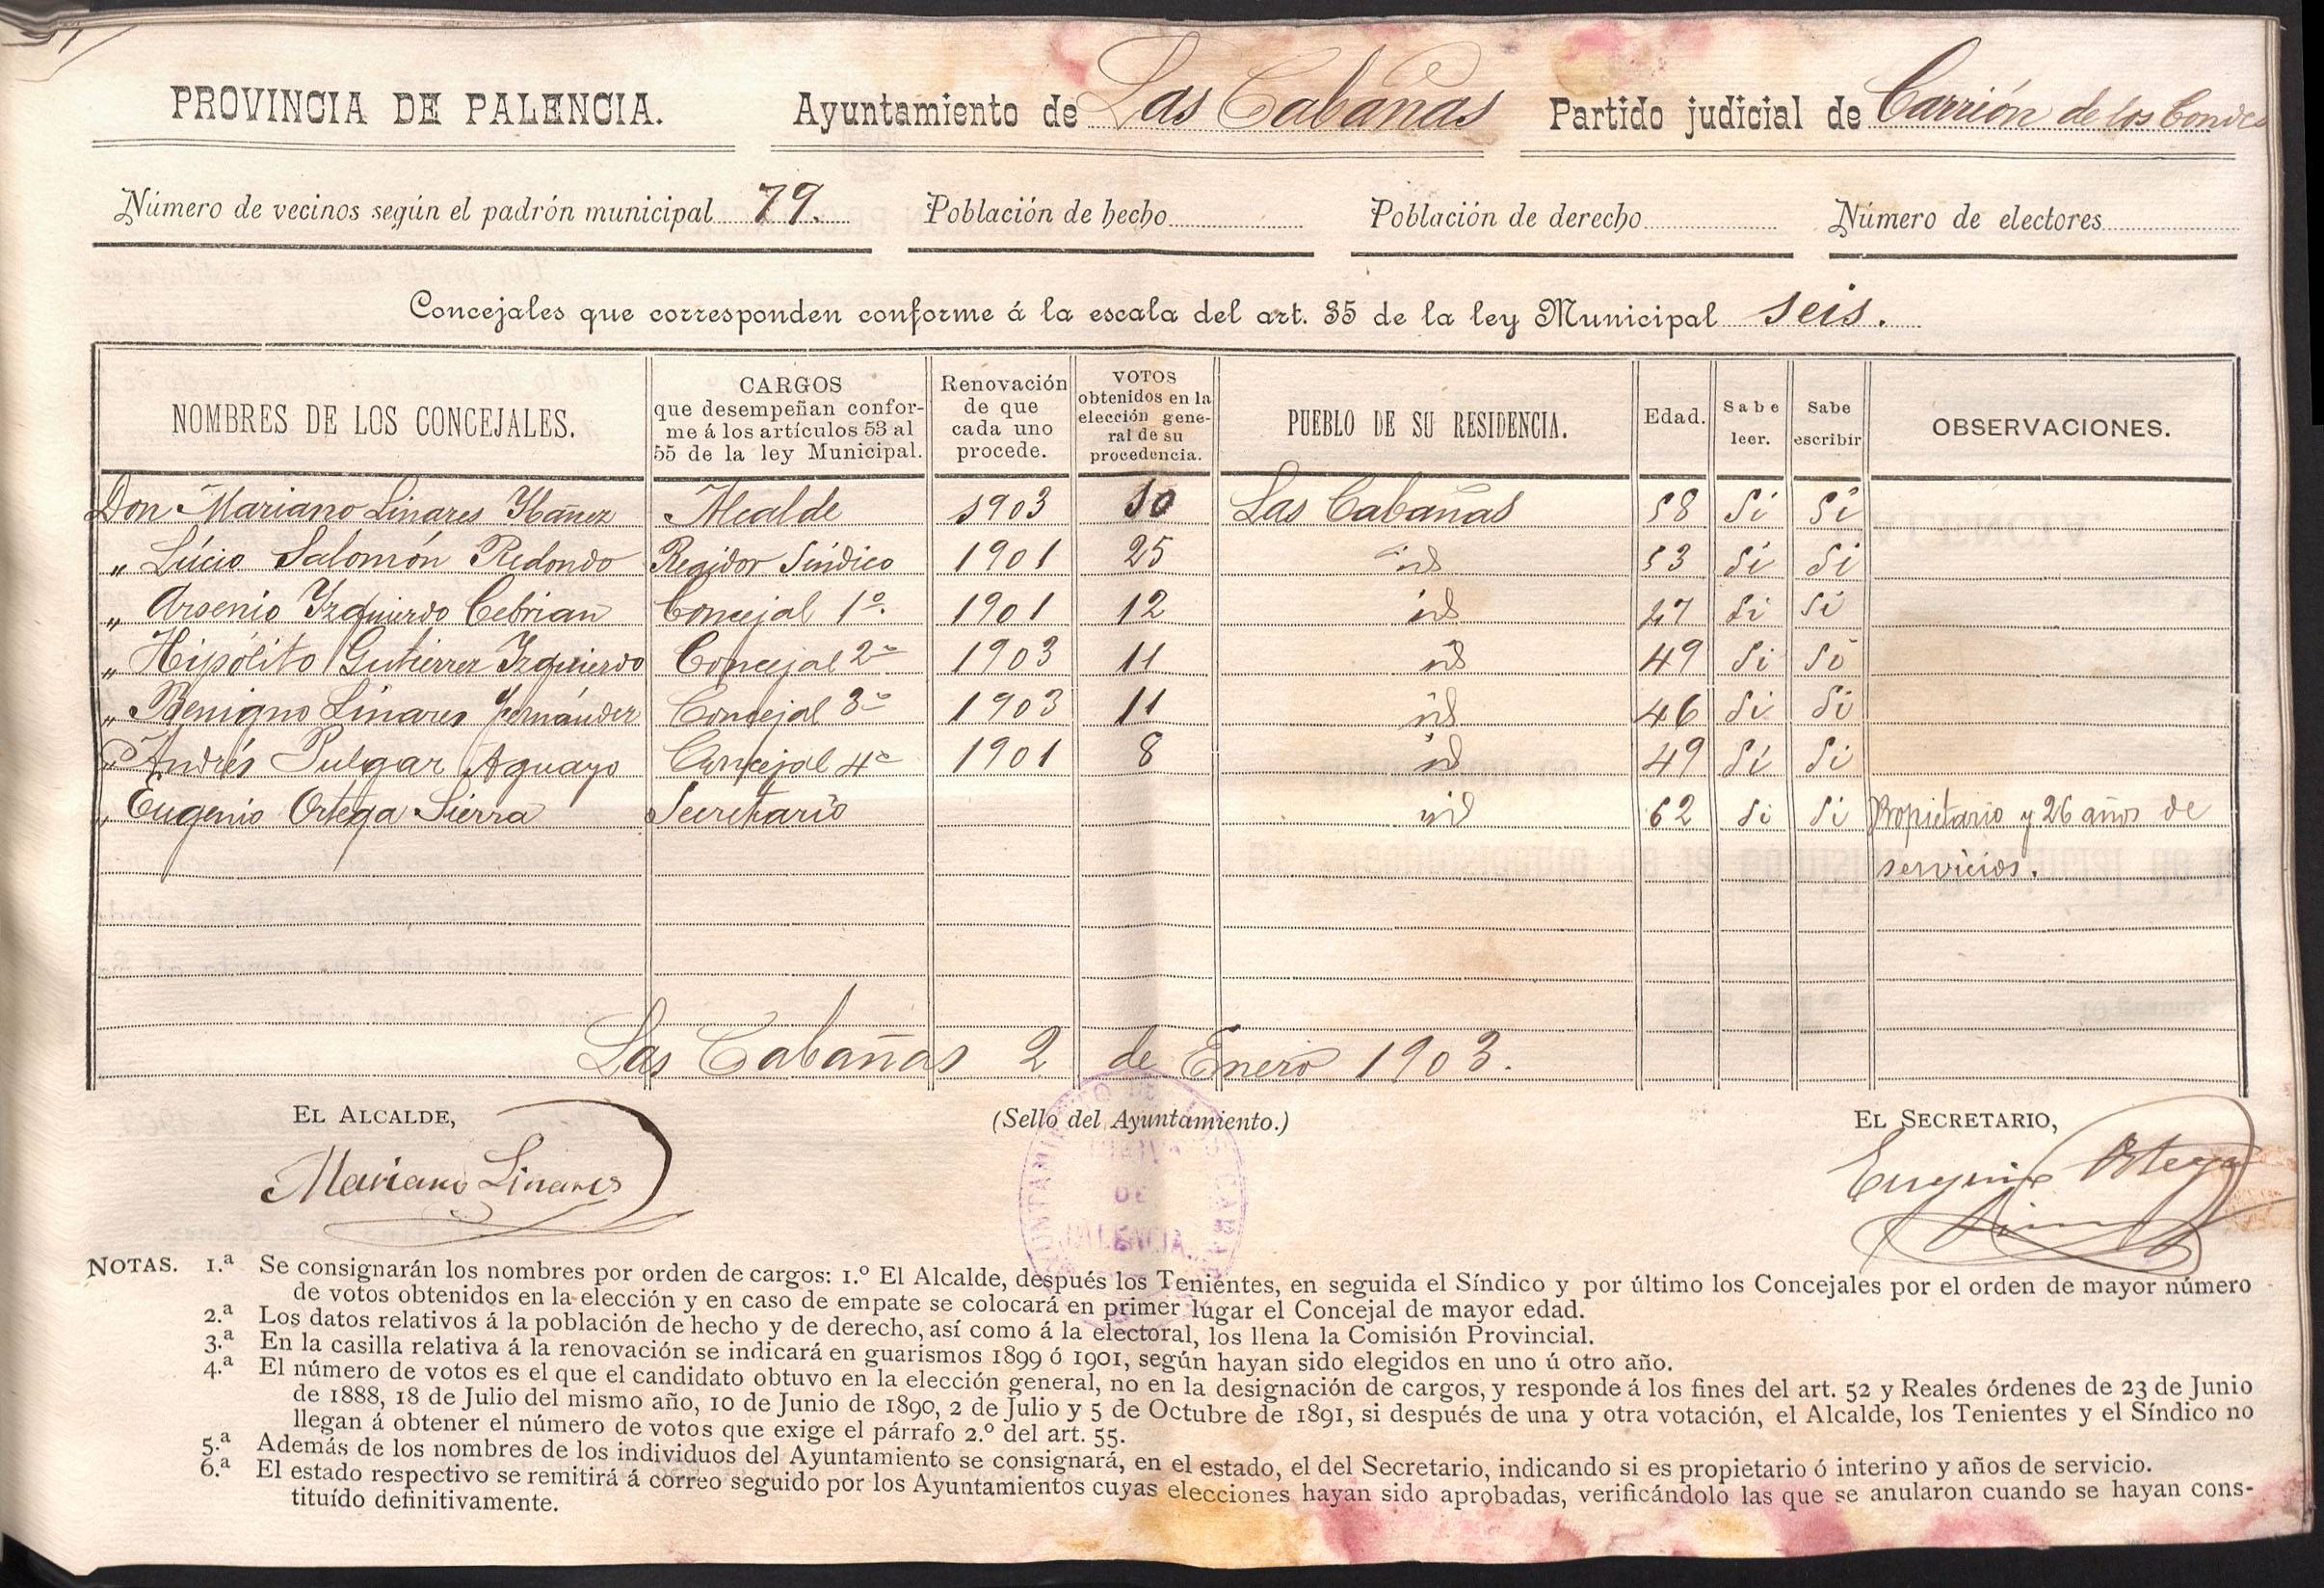 PROVINCIA DE PALENCIA. Ayuntamiento de Las Cabañas Partido judicial de Carrión de los Condes
Número de vecinos según el padrón municipal 79. Población de hecho Población de derecho Número de electores
Concejales que corresponden conforme á la escala del art. 35 de la ley Municipal seis.
NOMBRES DE LOS CONCEJALES. CARGOS que desempeñan conforme á los artículos 53 al 55 de la ley Municipal. Renovación de que cada uno procede. VOTOS obtenidos en la elección general de su procedencia. PUEBLO DE SU RESIDENCIA. Edad. Sabe leer. Sabe escribir OBSERVACIONES.
Don Mariano Linares Ybáñez Alcalde 1903 10 Las Cabañas 58 Si Si
„ Lúcio Salomón Redondo Regidor Síndico 1901 25 id 53 Si Si
„ Arsenio Yzquierdo Cebrian Concejal 1º. 1901 12 id 47 Si Si
„ Hipólito Gutierrez Yzquierdo Concejal 2º 1903 11 id 49 Si Si
„ Benigno Linares Fernández Concejal 3º 1903 11 id 46 Si Si
„ Andrés Pulgar Aguayo Concejal 4º 1901 8 id 49 Si Si
„ Eugenio Ortega Sierra Secretario id 62 Si Si Propietario y 26 años de
servicios.
Las Cabañas 2 de Enero 1903.
EL ALCALDE, (Sello del Ayuntamiento.) EL SECRETARIO,
Mariano Linares
Eugenio Ortega
DE
PALENCIA.
NOTAS. 1.ª Se consignarán los nombres por orden de cargos: 1.º El Alcalde, después los Tenientes, en seguida el Síndico y por último los Concejales por el orden de mayor número
de votos obtenidos en la elección y en caso de empate se colocará en primer lugar el Concejal de mayor edad.
2.ª Los datos relativos á la población de hecho y de derecho, así como á la electoral, los llena la Comisión Provincial.
3.ª En la casilla relativa á la renovación se indicará en guarismos 1899 ó 1901, según hayan sido elegidos en uno ú otro año.
4.ª El número de votos es el que el candidato obtuvo en la elección general, no en la designación de cargos, y responde á los fines del art. 52 y Reales órdenes de 23 de Junio
de 1888, 18 de Julio del mismo año, 10 de Junio de 1890, 2 de Julio y 5 de Octubre de 1891, si después de una y otra votación, el Alcalde, los Tenientes y el Síndico no
llegan á obtener el número de votos que exige el párrafo 2.º del art. 55.
5.ª Además de los nombres de los individuos del Ayuntamiento se consignará, en el estado, el del Secretario, indicando si es propietario ó interino y años de servicio.
6.ª El estado respectivo se remitirá á correo seguido por los Ayuntamientos cuyas elecciones hayan sido aprobadas, verificándolo las que se anularon cuando se hayan cons-
tituído definitivamente.